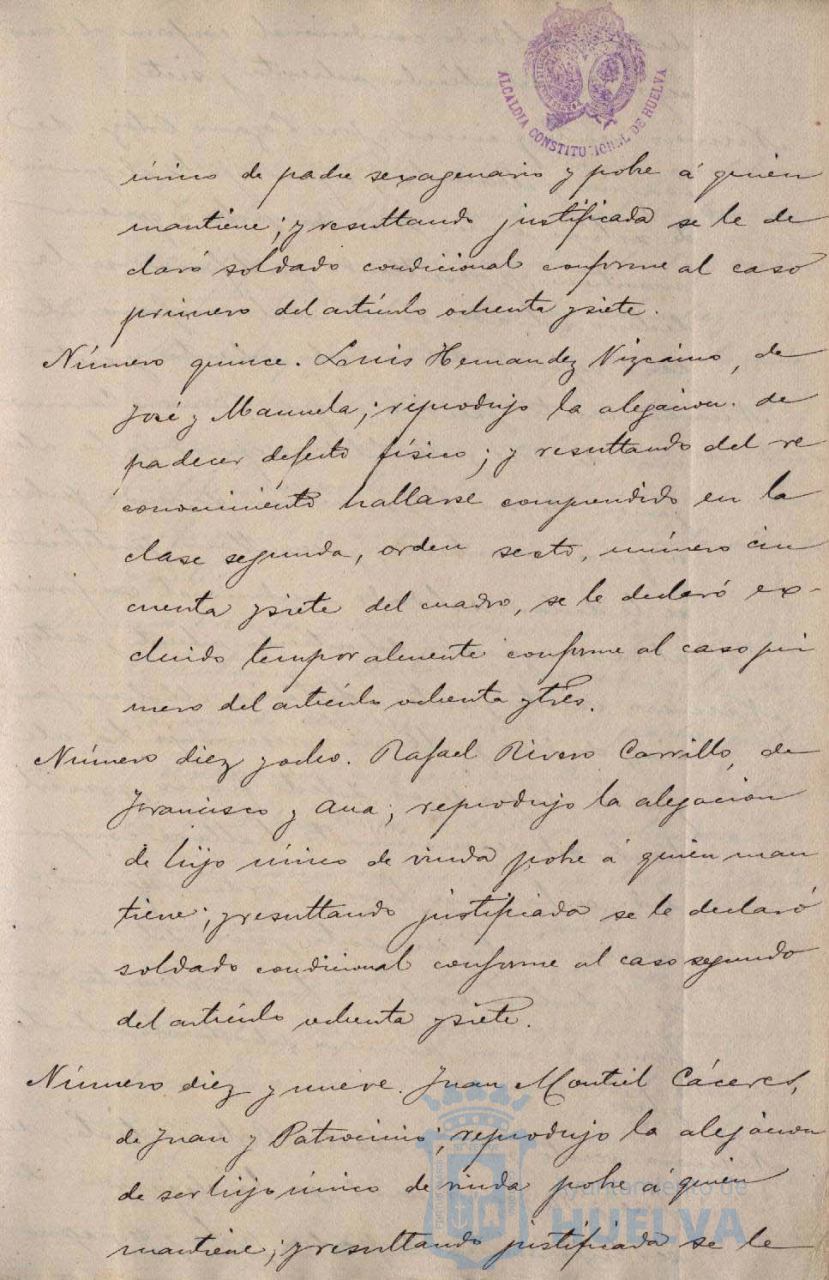 ALCALDIA CONSTITUCIONAL DE HUELVA
único de padre sexagenario y pobre á quien
mantiene; y resultando justificada se le de
claró soldado condicional conforme al caso
primero del artículo ochenta y siete.
Número quince. Luis Hernandez Vizcaino, de
José y Manuela; reprodujo la alegacion. de
padecer defecto físico; y resultando del re
conocimiento hallarse comprendido en la
clase segunda, orden sesto, número cin
cuenta y siete del cuadro, se le declaró ex-
cluido temporalmente conforme al caso pri
mero del artículo ochenta y tres.
Número diez y ocho. Rafael Rivero Carrillo, de
Francisco y Ana; reprodujo la alegacion
de hijo único de viuda pobre á quien man
tiene; y resultando justificada se le declaró
soldado condicional conforme al caso segundo
del artículo ochenta y siete.
Número diez y nueve. Juan Montiel Cáceres,
de Juan y Patrocinio; reprodujo la alegacion
de ser hijo único de viuda pobre á quien
mantiene; y resultando justificada se le
Ayuntamiento de
HUELVA